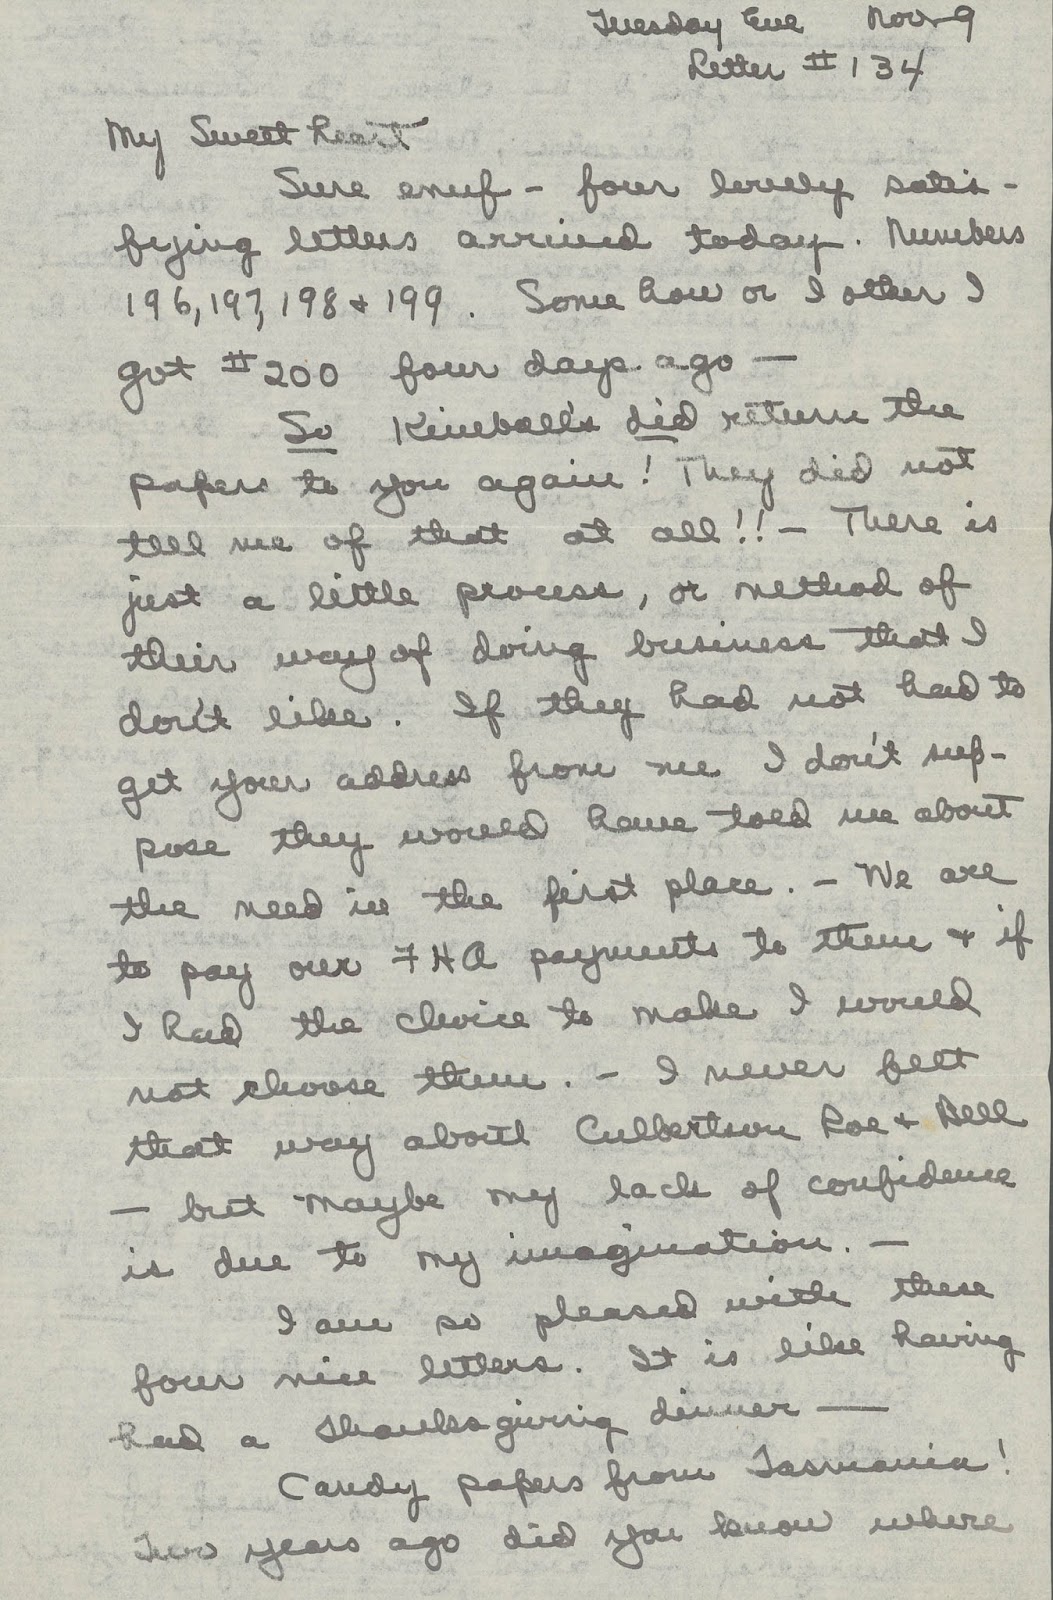 Tuesday Eve Nov 9
Letter # 134
My Sweet heart
Sure enuf - four lovely satis-
fying letters arrived today. Numbers
196, 197, 198 + 199. Some how or I other I
got # 200 four days ago —
So Kimball's did return the
papers to you again! They did not
tell me of that at all!! - There is
just a little process, or method of
their way of doing business that I
don't like. If they had not had to
get your address from me I don't sup-
pose they would have told me about
the need in the first place. - We are
to pay our FHA payments to them + if
I had the choice to make I would
not choose them. - I never felt
that way about Culbertson Roe + Bell
- but maybe my lack of confidence
is due to my imagination. -
I am so pleased with these
four nice letters. It is like having
had a Thanksgiving dinner —
Candy papers from Tasmania!
Two years ago did you know where